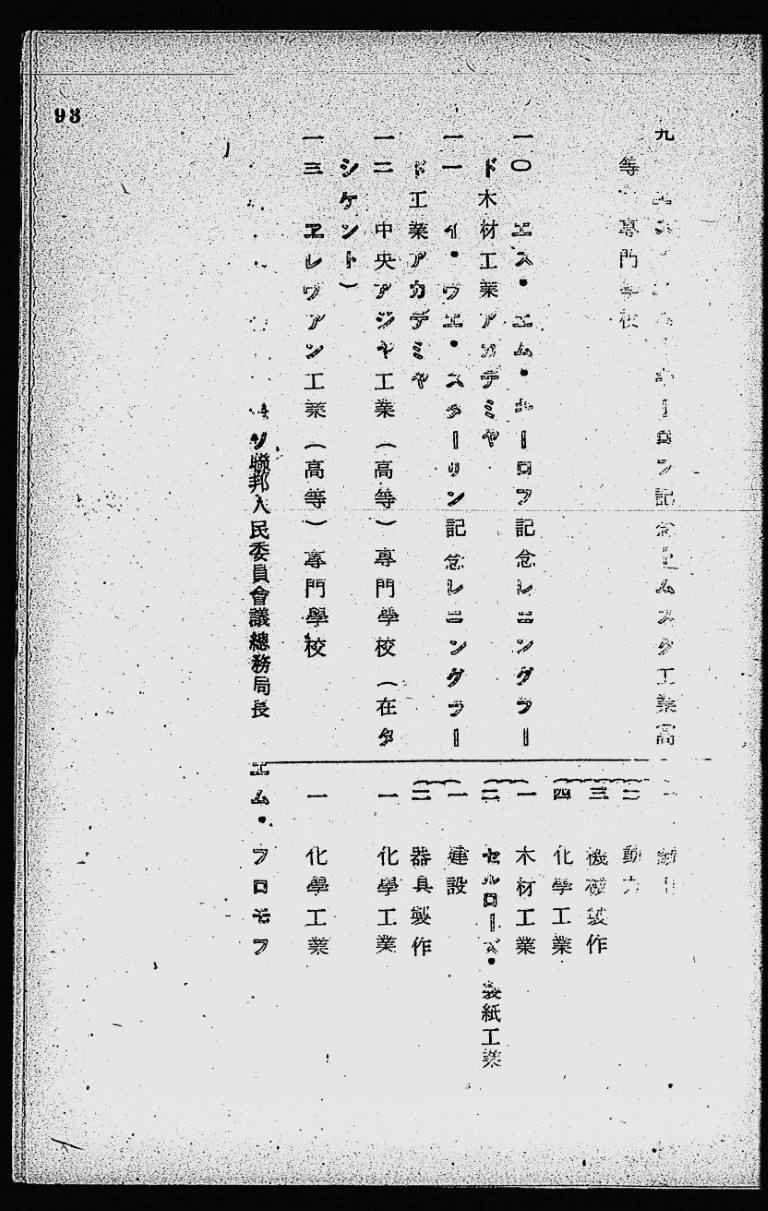 九 エス・エム・キーロフ記念トムスク工業高
等 專門學校
一〇 エス・エム・キーロフ記念レニングラー
ド木材工業アカデミヤ
一一 イ・ヴエ・スターリン記念レニングラー
ド工業アカデミヤ
一二 中央アジヤ工業(高等)專門學校(在タ
シケント)
一三 ヱレヴアン工業(高等)專門學校
ソ聯邦人民委員會議總務局長 エム・フロモフ
一
二 動力
三 機械製作
四 化學工業
一 木材工業
二 セルローズ・製紙工業
一 建設
二 器具製作
一 化學工業
一 化學工業
93